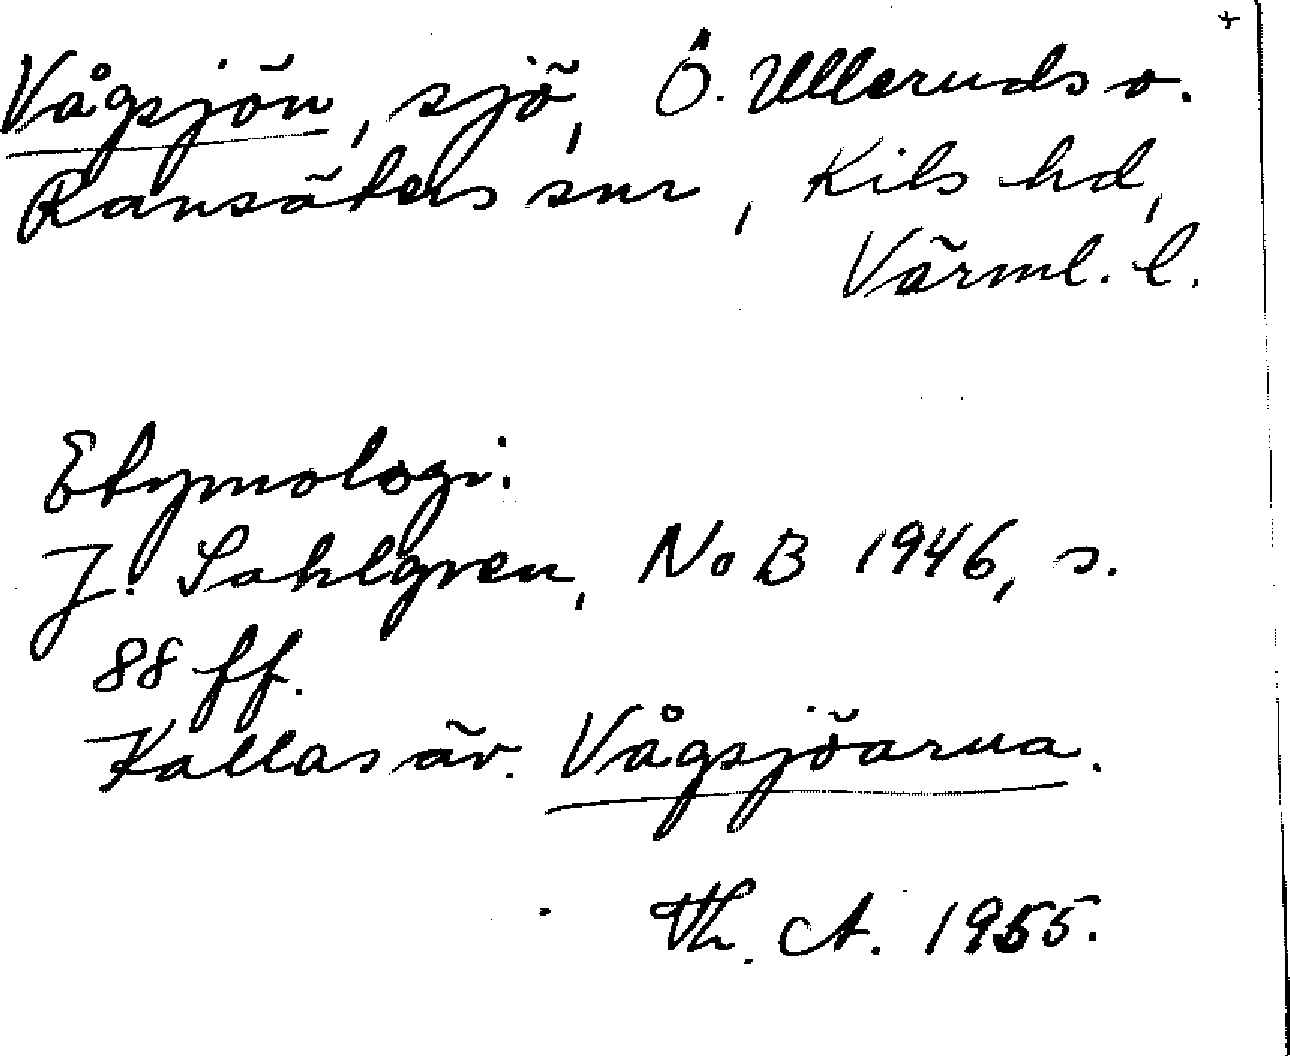 Vågsjön, sjö, Ö. Ulleruds o.
Ransäters snr, Kils hd,
Värml. l.
Etymologi:
J. Sahlgren, NoB 1946, s.
88 ff.
Kallas äv. Vågsjöarna.
Th. A. 1955.